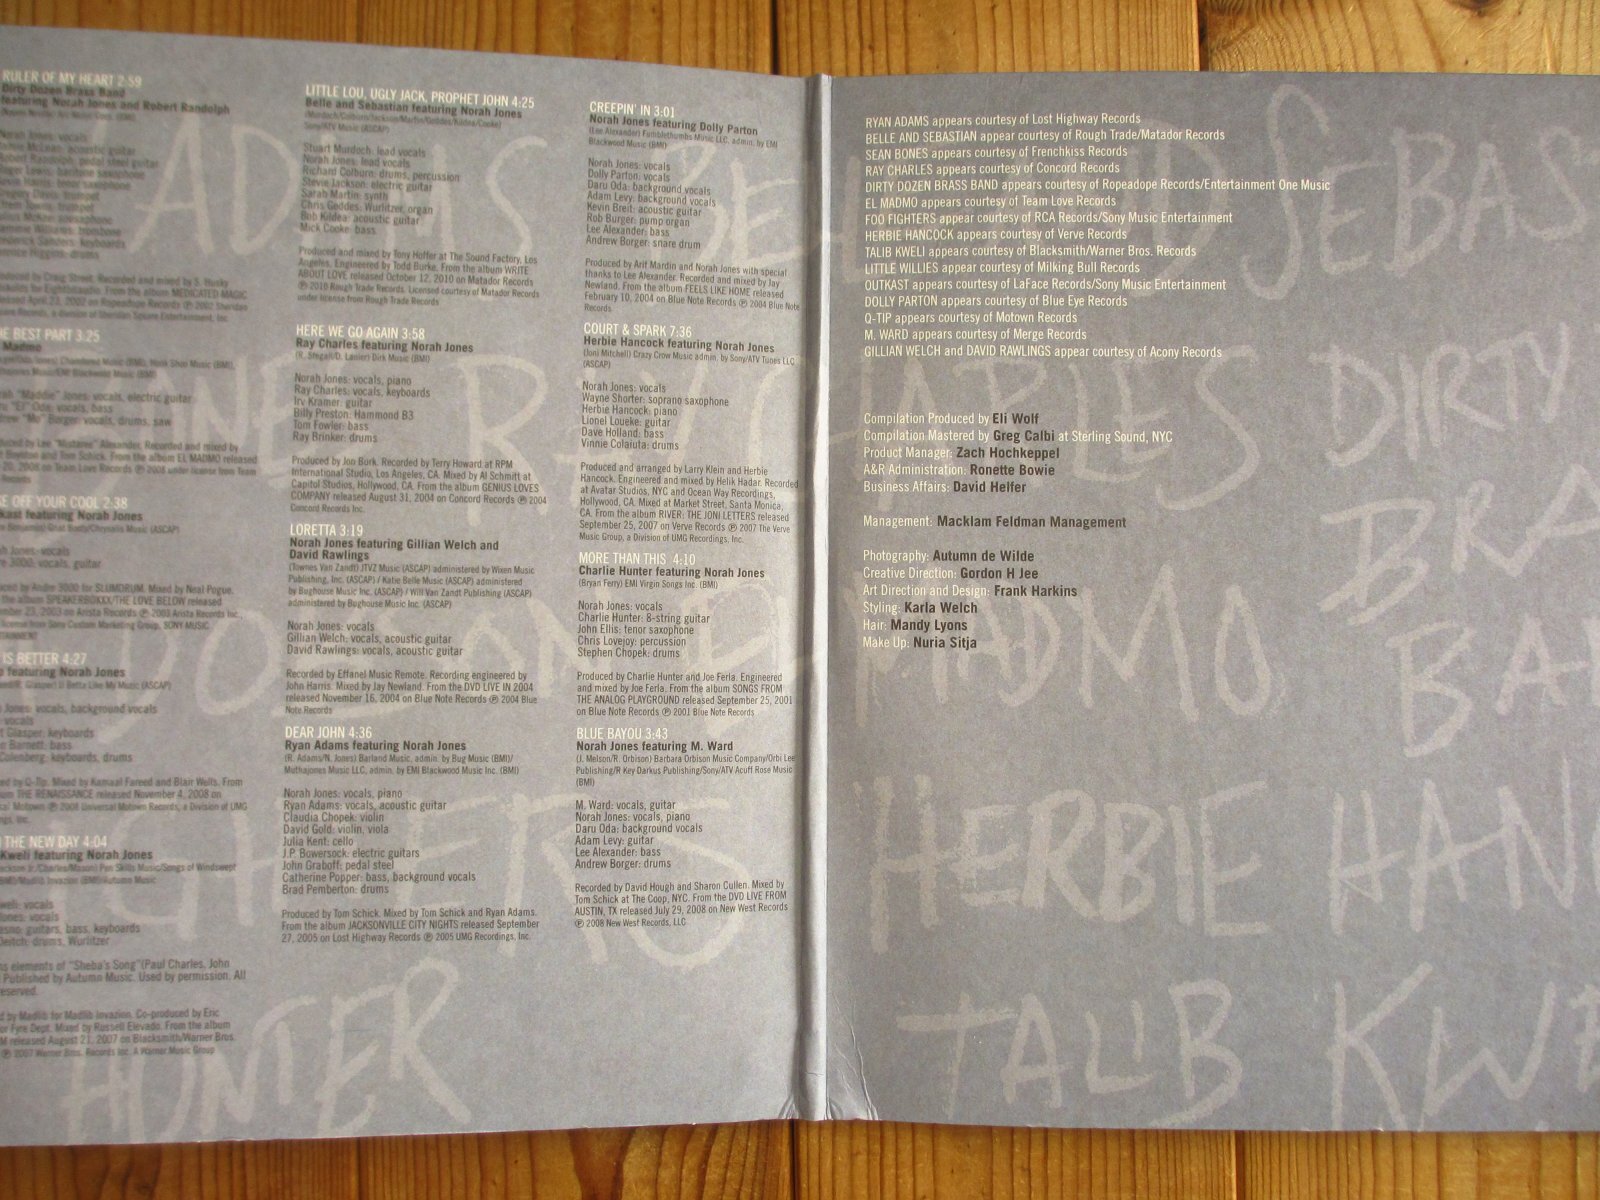 RULER OF MY HEART 2:59
Dirty Dozen Brass Band
featuring Norah Jones and Robert Randolph
Norah Jones: vocals
E BEST PART 3:25
Madmo
vocals, bass
Borger: vocals, drums, saw
E OFF YOUR COOL 2:38
kast featuring Norah Jones
h Jones: vocals
e 3000: vocals, guitar
IS BETTER 4:27
featuring Norah Jones
Jones: vocals, background vocals
vocals
t Glasper: keyboards
Barnett: bass
Colenberg: keyboards, drums
ed by Q-Tip. Mixed by Kamaal Fareed and Blair Wells. From
THE RENAISSANCE released November 4, 2008 on
THE NEW DAY 4:04
Kweli featuring Norah Jones
weli: vocals
ones: vocals
guitars, bass, keyboards
Deitch: drums, Wurlitzer
s elements of "Sheba's Song" (Paul Charles, John
Published by Autumn Music. Used by permission. All
eserved.
d by Madlib for Madlib Invazion. Co-produced by Eric
or Fyre Dept. Mixed by Russell Elevado. From the album
M released August 21, 2007 on Blacksmith/Warner Bros.
℗ 2007 Warner Bros. Records Inc. A Warner Music Group
LITTLE LOU, UGLY JACK, PROPHET JOHN 4:25
Belle and Sebastian featuring Norah Jones
(Murdoch/Colburn/Jackson/Martin/Geddes/Kildea/Cooke)
Sony/ATV Music (ASCAP)
Stuart Murdoch: lead vocals
Norah Jones: lead vocals
Richard Colburn: drums, percussion
Stevie Jackson: electric guitar
Sarah Martin: synth
Chris Geddes: Wurlitzer, organ
Bob Kildea: acoustic guitar
Mick Cooke: bass
Produced and mixed by Tony Hoffer at The Sound Factory, Los
Angeles. Engineered by Todd Burke. From the album WRITE
ABOUT LOVE released October 12, 2010 on Matador Records
℗ 2010 Rough Trade Records. Licensed courtesy of Matador Records
under license from Rough Trade Records
HERE WE GO AGAIN 3:58
Ray Charles featuring Norah Jones
(R. Steagall/D. Lanier) Dirk Music (BMI)
Norah Jones: vocals, piano
Ray Charles: vocals, keyboards
Irv Kramer: guitar
Billy Preston: Hammond B3
Tom Fowler: bass
Ray Brinker: drums
Produced by Jon Burk. Recorded by Terry Howard at RPM
International Studio, Los Angeles, CA. Mixed by Al Schmitt at
Capitol Studios, Hollywood, CA. From the album GENIUS LOVES
COMPANY released August 31, 2004 on Concord Records ℗ 2004
Concord Records Inc.
LORETTA 3:19
Norah Jones featuring Gillian Welch and
David Rawlings
(Townes Van Zandt) JTVZ Music (ASCAP) administered by Wixen Music
Publishing, Inc. (ASCAP) / Katie Belle Music (ASCAP) administered
by Bughouse Music Inc. (ASCAP) / Will Van Zandt Publishing (ASCAP)
administered by Bughouse Music Inc. (ASCAP)
Norah Jones: vocals
Gillian Welch: vocals, acoustic guitar
David Rawlings: vocals, acoustic guitar
Recorded by Effanel Music Remote. Recording engineered by
John Harris. Mixed by Jay Newland. From the DVD LIVE IN 2004
released November 16, 2004 on Blue Note Records ℗ 2004 Blue
Note Records
DEAR JOHN 4:36
Ryan Adams featuring Norah Jones
(R. Adams/N. Jones) Barland Music, admin. by Bug Music (BMI)/
Muthajones Music LLC, admin. by EMI Blackwood Music Inc. (BMI)
Norah Jones: vocals, piano
Ryan Adams: vocals, acoustic guitar
Claudia Chopek: violin
David Gold: violin, viola
Julia Kent: cello
J.P. Bowersock: electric guitars
John Graboff: pedal steel
Catherine Popper: bass, background vocals
Brad Pemberton: drums
Produced by Tom Schick. Mixed by Tom Schick and Ryan Adams.
From the album JACKSONVILLE CITY NIGHTS released September
27, 2005 on Lost Highway Records ℗ 2005 UMG Recordings, Inc.
CREEPIN' IN 3:01
Norah Jones featuring Dolly Parton
(Lee Alexander) Fumblethumbs Music LLC, admin. by EMI
Blackwood Music (BMI)
Norah Jones: vocals
Dolly Parton: vocals
Daru Oda: background vocals
Adam Levy: background vocals
Kevin Breit: acoustic guitar
Rob Burger: pump organ
Lee Alexander: bass
Andrew Borger: snare drum
Produced by Arif Mardin and Norah Jones with special
thanks to Lee Alexander. Recorded and mixed by Jay
Newland. From the album FEELS LIKE HOME released
February 10, 2004 on Blue Note Records ℗ 2004 Blue Note
Records
COURT & SPARK 7:36
Herbie Hancock featuring Norah Jones
(Joni Mitchell) Crazy Crow Music admin. by Sony/ATV Tunes LLC
(ASCAP)
Norah Jones: vocals
Wayne Shorter: soprano saxophone
Herbie Hancock: piano
Lionel Loueke: guitar
Dave Holland: bass
Vinnie Colaiuta: drums
Produced and arranged by Larry Klein and Herbie
Hancock. Engineered and mixed by Helik Hadar. Recorded
at Avatar Studios, NYC and Ocean Way Recordings,
Hollywood, CA. Mixed at Market Street, Santa Monica,
CA. From the album RIVER: THE JONI LETTERS released
September 25, 2007 on Verve Records ℗ 2007 The Verve
Music Group, a Division of UMG Recordings, Inc.
MORE THAN THIS 4:10
Charlie Hunter featuring Norah Jones
(Bryan Ferry) EMI Virgin Songs Inc. (BMI)
Norah Jones: vocals
Charlie Hunter: 8-string guitar
John Ellis: tenor saxophone
Chris Lovejoy: percussion
Stephen Chopek: drums
Produced by Charlie Hunter and Joe Ferla. Engineered
and mixed by Joe Ferla. From the album SONGS FROM
THE ANALOG PLAYGROUND released September 25, 2001
on Blue Note Records ℗ 2001 Blue Note Records
BLUE BAYOU 3:43
Norah Jones featuring M. Ward
(J. Melson/R. Orbison) Barbara Orbison Music Company/Orbi Lee
Publishing/R Key Darkus Publishing/Sony/ATV Acuff Rose Music
(BMI)
M. Ward: vocals, guitar
Norah Jones: vocals, piano
Daru Oda: background vocals
Adam Levy: guitar
Lee Alexander: bass
Andrew Borger: drums
Recorded by David Hough and Sharon Cullen. Mixed by
Tom Schick at The Coop, NYC. From the DVD LIVE FROM
AUSTIN, TX released July 29, 2008 on New West Records
℗ 2008 New West Records, LLC
RYAN ADAMS appears courtesy of Lost Highway Records
BELLE AND SEBASTIAN appear courtesy of Rough Trade/Matador Records
SEAN BONES appears courtesy of Frenchkiss Records
RAY CHARLES appears courtesy of Concord Records
DIRTY DOZEN BRASS BAND appears courtesy of Ropeadope Records/Entertainment One Music
EL MADMO appears courtesy of Team Love Records
FOO FIGHTERS appear courtesy of RCA Records/Sony Music Entertainment
HERBIE HANCOCK appears courtesy of Verve Records
TALIB KWELI appears courtesy of Blacksmith/Warner Bros. Records
LITTLE WILLIES appear courtesy of Milking Bull Records
OUTKAST appears courtesy of LaFace Records/Sony Music Entertainment
DOLLY PARTON appears courtesy of Blue Eye Records
Q-TIP appears courtesy of Motown Records
M. WARD appears courtesy of Merge Records
GILLIAN WELCH and DAVID RAWLINGS appear courtesy of Acony Records
Compilation Produced by Eli Wolf
Compilation Mastered by Greg Calbi at Sterling Sound, NYC
Product Manager: Zach Hochkeppel
A&R Administration: Ronette Bowie
Business Affairs: David Helfer
Management: Macklam Feldman Management
Photography: Autumn de Wilde
Creative Direction: Gordon H Jee
Art Direction and Design: Frank Harkins
Styling: Karla Welch
Hair: Mandy Lyons
Make Up: Nuria Sitja
ADAMS BE D SEBAS
RAY CHARLES DIRTY
BRA
MADMO BA
HERBIE HAN
HUNTER TALIB KWE